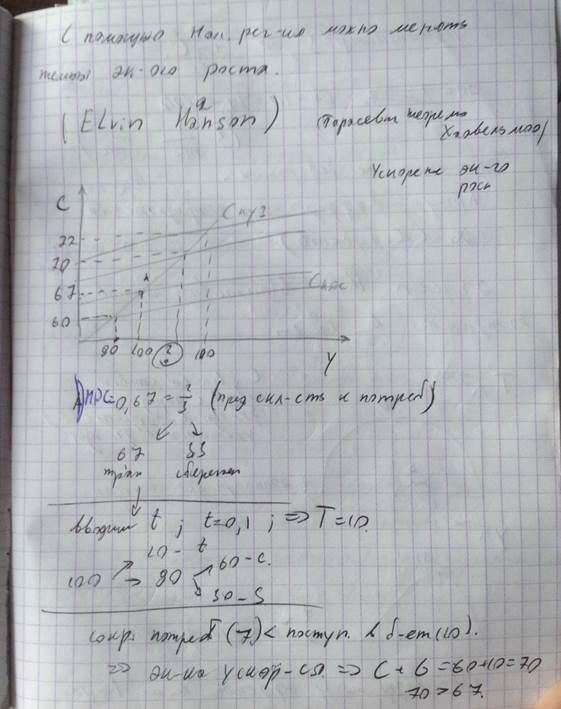 С помощью нал. рег-ия можно менять
темпы эк-ого роста.
(Elvin Hansen)
(Тарасевич теорема
Хаавельмо)
Ускорение эк-го
роста
C
72
70
67
60
A
90 100 ? 100
Y
MPC=0,67=2/3 (пред скл-сть к потреб)
67 33
сбережен
вводим t ; t=0,1 ; => T=10.
10 - t
100 → 90
60 - C.
30 - S
сокр. потреб (7) < поступ. в б-ет (10).
=> эк-ка ускор-ся. => C + G = 60+10=70
70>67.